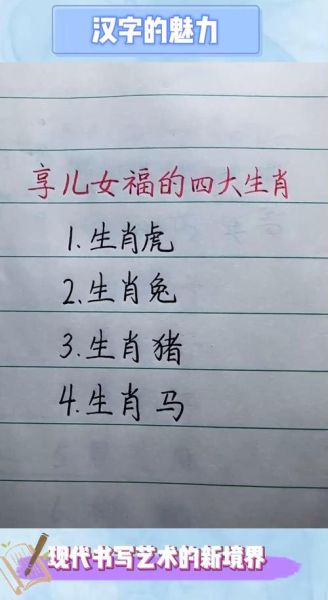 汉字的魅力
享儿女福的四大生肖
1.生肖虎
2.生肖兔
3.生肖猪
4.生肖马
现代书写艺术的新境界